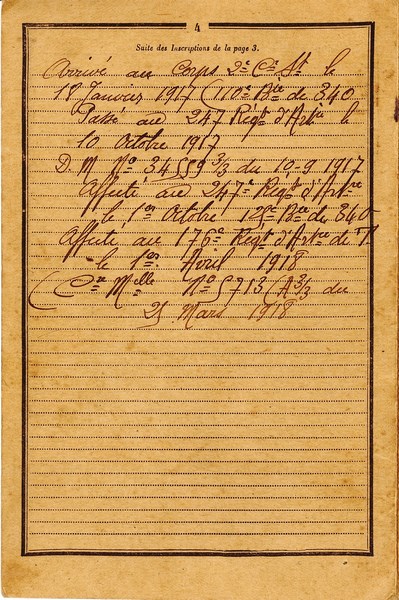 4
Suite des Inscriptions de la page 3.
Arrivé au Corps 2e Cr St le
18 Janvier 1917 (110e Bie de 340
Passé au 247 Régt d'Artrie le
10 Octobre 1917
D. M No 34559 3/3 du 10-9 1917
Affecté au 247e Régt d'Artrie
le 1er Octobre 128e Bie de 340
Affecté au 176e Régt d'Artrie de T.
le 1er Avril 1918
(Cre Melle No 5713 (A 3/3 du
25 Mars 1918